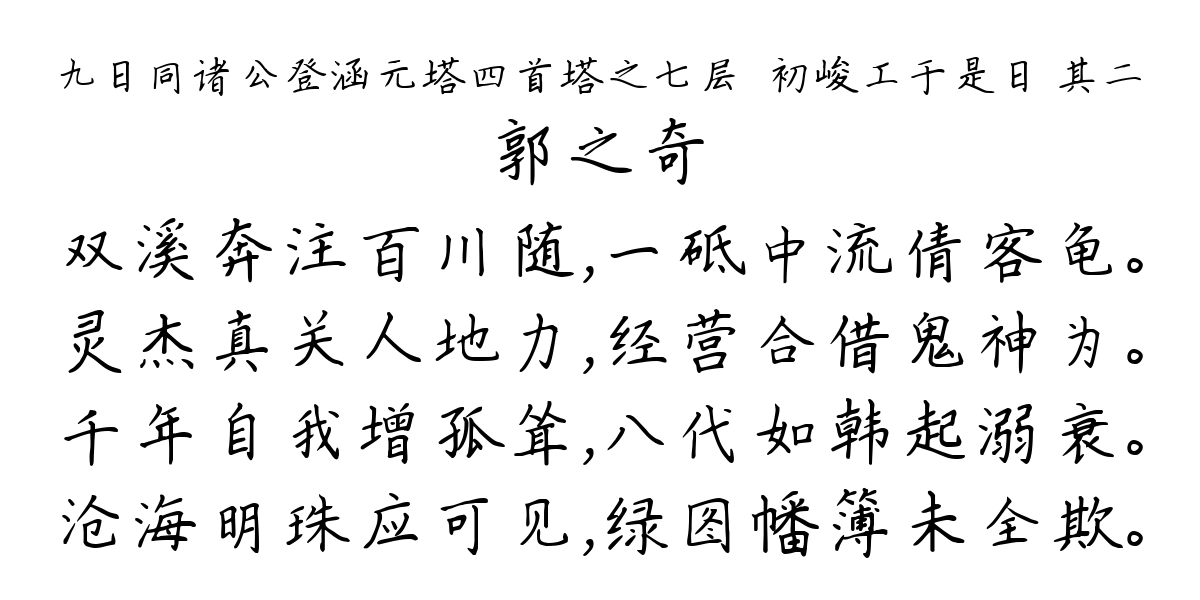 九日同诸公登涵元塔四首塔之七层 初峻工于是日 其二
郭之奇
双溪奔注百川随,一砥中流倩客龟。
灵杰真关人地力,经营合借鬼神为。
千年自我增孤耸,八代如韩起溺衰。
沧海明珠应可见,绿图幡簿未全欺。